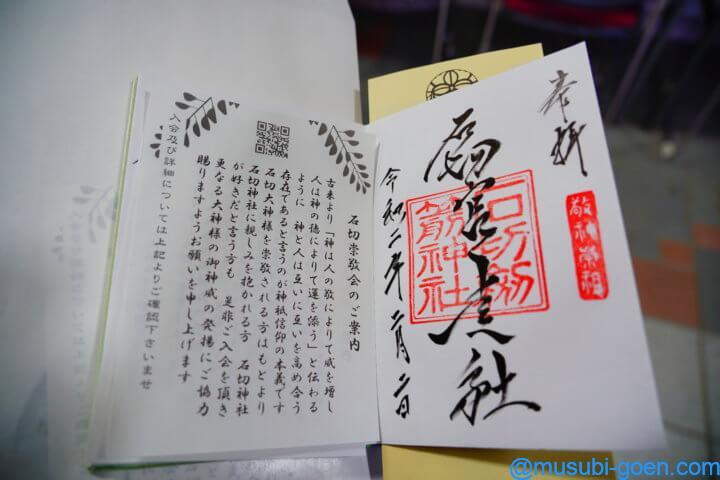 奉拝
敬神崇祖
石切劔
箭神社
令和二年二月二日
石切崇敬会のご案内
古来より「神は人の敬によりて威を増し
人は神の徳によりて運を添う」と伝わる
ように 神と人は互いに互いを高め合う
存在であると言うのが神祇信仰の本義です
石切大神様を崇敬される方はもとより
石切神社に親しみを抱かれる方 石切神社
が好きだと言う方も 是非ご入会を頂き
更なる大神様の御神威の発揚にご協力
賜りますようお願いを申し上げます
入会及び詳細については上記よりご確認下さいませ
@musubi-goen.com